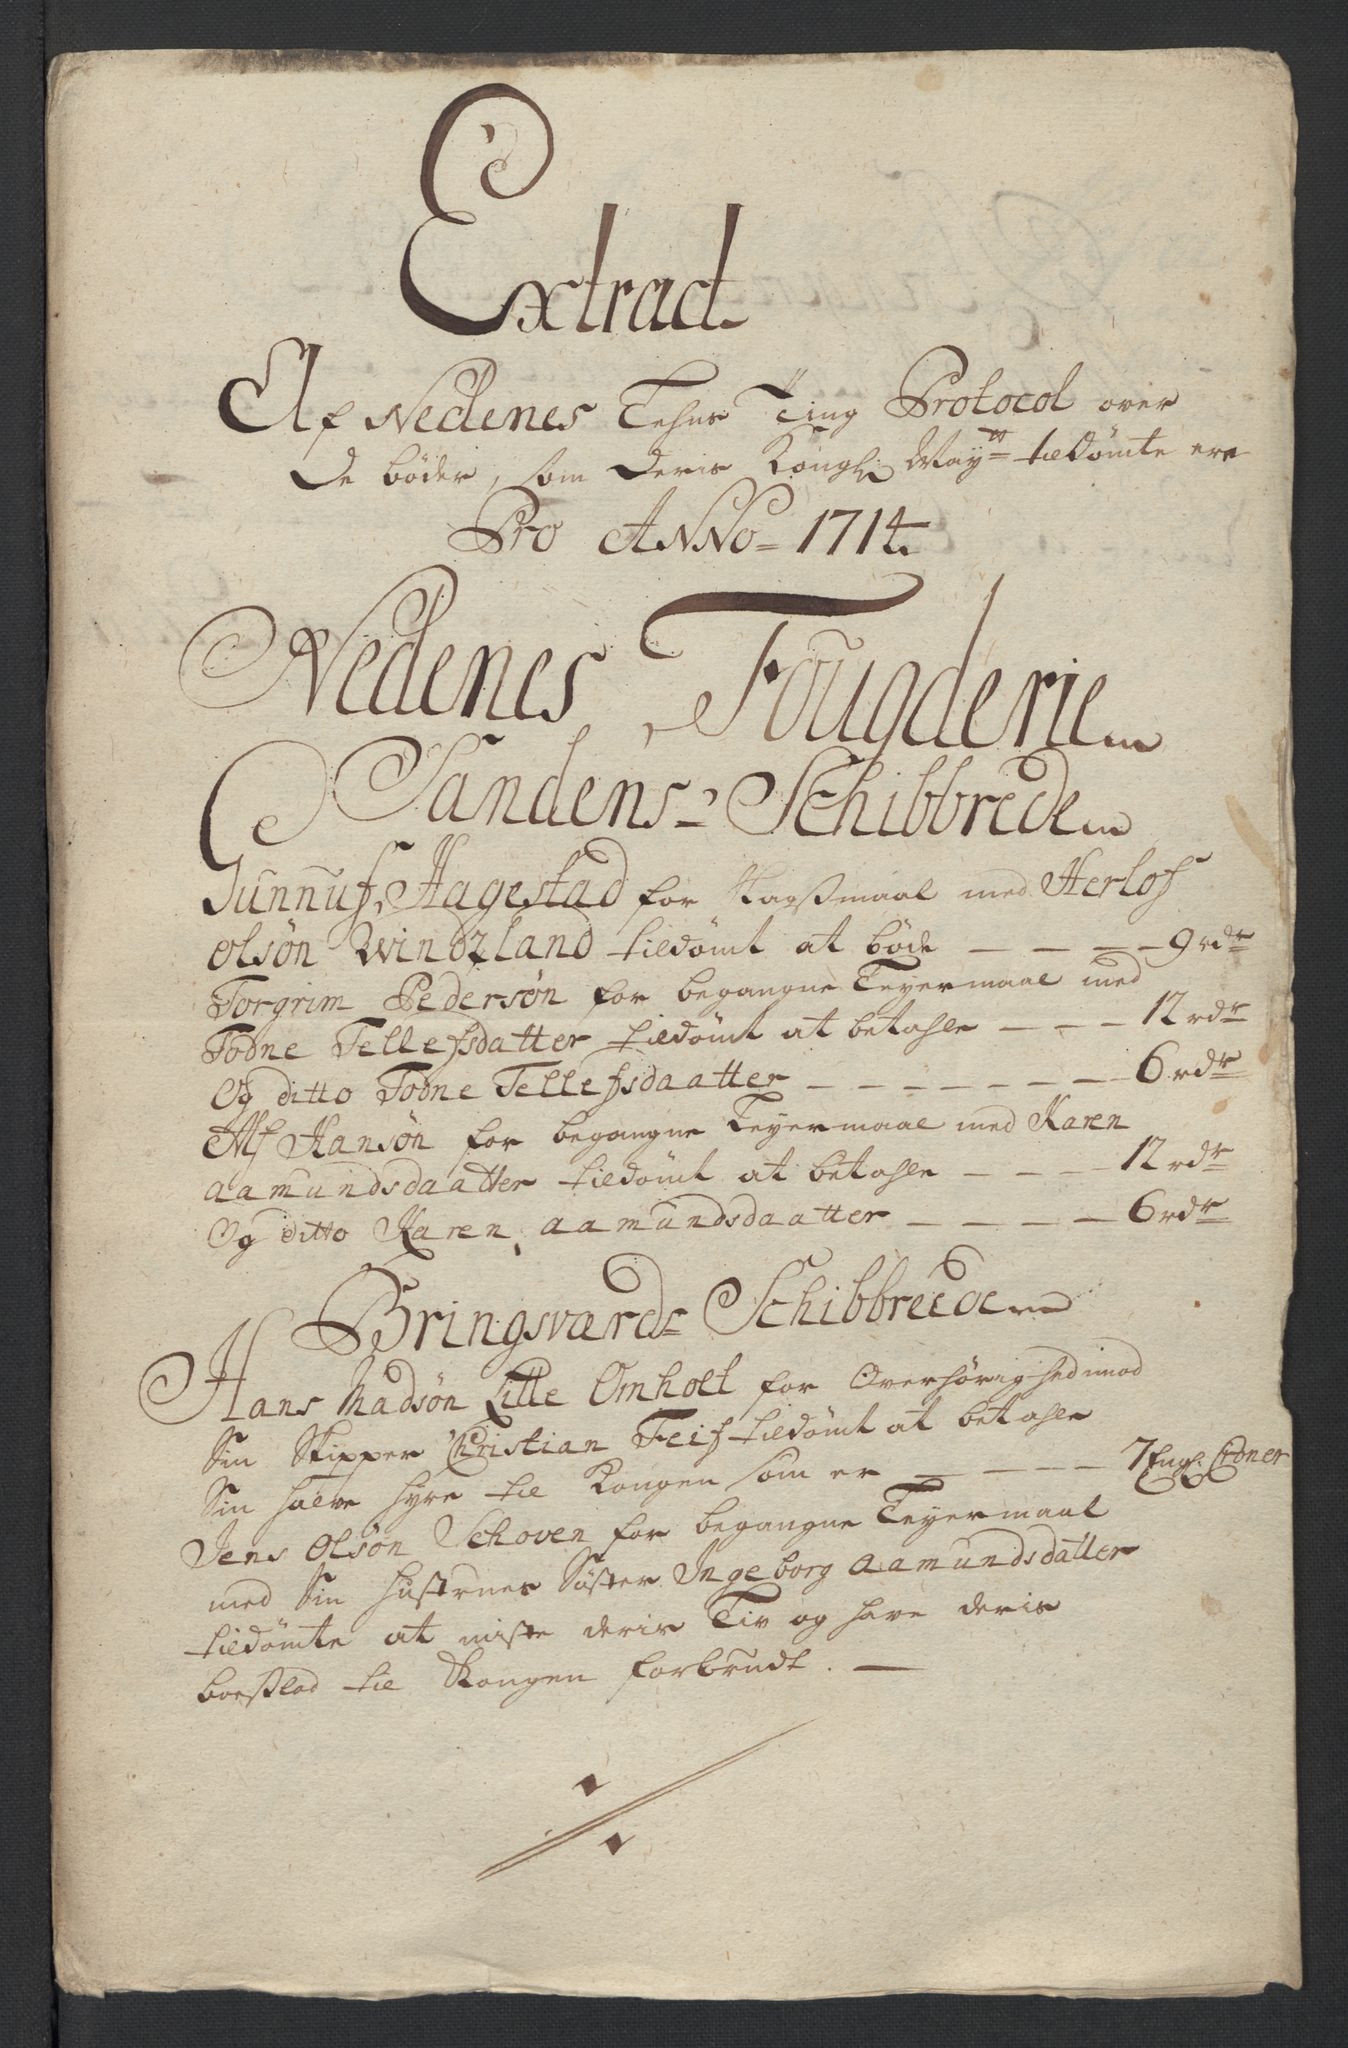 Extract
Af Nedenes Lehns Ting Protocol over
De bøder, som Deris Kongl: May:tt tildømte ere
Pro ANNo= 1714
Nedenes Fougderie
Sandens= Schibbrede
Gunnuf Hagestad for Slagsmaal med Herlof
olsøn Windzland tildømt at bøde — — — — 9 rdr
Torgrim Pedersøn for begangne Leyermaal med
Todne Tellefsdatter tildømt at betahle — — — 12 rdr
Og ditto Todne Tellefsdaatter — — — — — — — 6 rdr
Alf Hansøn for begangne Leyermaal med Karen
aamundsdaatter tildømt at betahle — — — — 12 rdr
Og ditto Karen aamundsdaatter — — — — — 6 rdr
Bringsværds Schibbreede
Hans Madsøn Lille Omholt for Overhørighed imod
Sin Skipper Christian Feif tildømt at betahle
Sin halve hyre til Kongen som er — — — — — 7 Engl: Croner
Jens Olsøn Schoven for begangne Leyermaal
med Sin hustrues Søster Ingeborg aamundsdatter
tildømte at miste deris Liv og have deris
boeslod til Kongen forbrudt. —